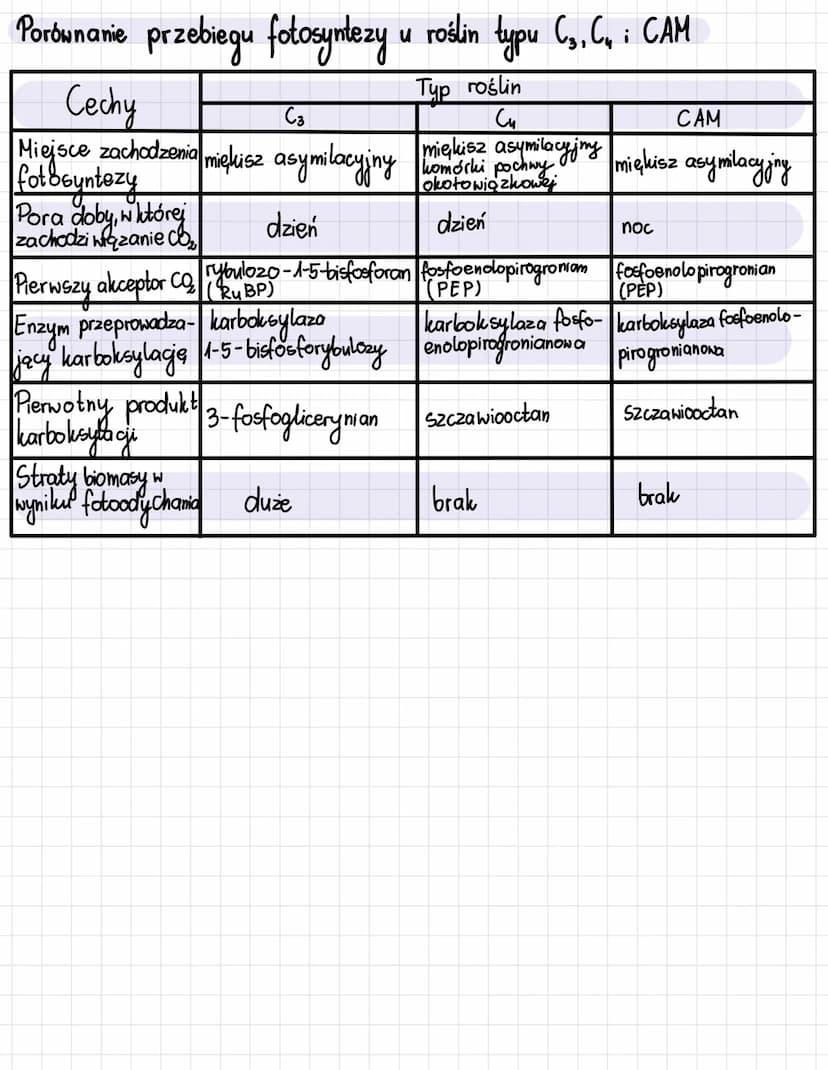 Porównanie przebiegu fotosyntezy u roślin typu C₃, C₄ i CAM
Cechy
Typ roślin
C₃
C₄
CAM
Miejsce zachodzenia
fotosyntezy
miękisz asymilacyjny
miękisz asymilacyjny
komórki pochwy
okołowiązkowej
miękisz asymilacyjny
Pora doby, w której
zachodzi wiązanie CO₂
dzień
dzień
noc
Pierwszy akceptor CO₂
rybulozo-1-5-bisfosforan
(RuBP)
fosfoenolopirogronian
(PEP)
fosfoenolopirogronian
(PEP)
Enzym przeprowadza-
jący karboksylację
karboksylaza
1-5-bisfosforybulozy
karboksylaza fosfo-
enolopirogronianowa
karboksylaza fosfoenolo-
pirogronianowa
Pierwotny produkt
karboksylacji
3-fosfoglicerynian
szczawiooctan
szczawiooctan
Straty biomasy w
wyniku fotoodychania
duże
brak
brak